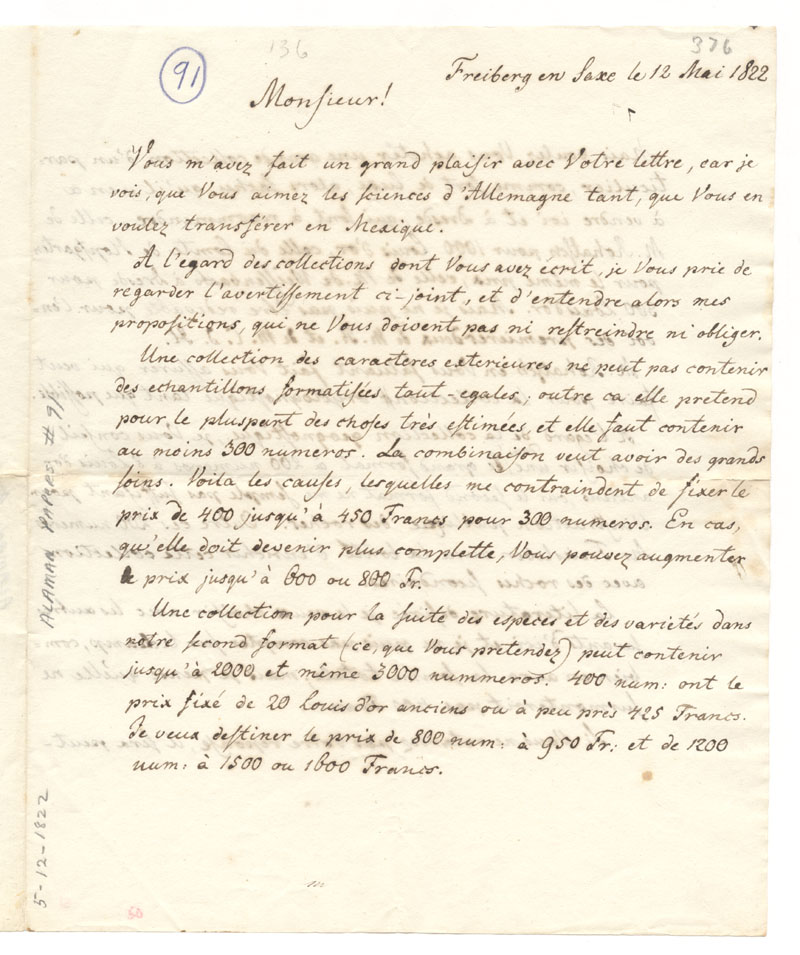 136
376
91
Freiberg en Saxe le 12 Mai 1822
Monsieur!
Vous m'avez fait un grand plaisir avec Votre lettre, car je
vois, que Vous aimez les sciences d'Allemagne tant, que Vous en
voulez transférer en Mexique.
A l'egard des collections dont Vous avez écrit, je Vous prie de
regarder l'avertissement ci-joint, et d'entendre alors mes
propositions, qui ne Vous doivent pas ni restreindre ni obliger.
Une collection des caracteres exterieures ne peut pas contenir
des echantillons formatisées tout-egales; outre ca elle pretend
pour le pluspart des choses très estimées, et elle faut contenir
au moins 300 numeros. La combinaison veut avoir des grands
soins. Voila les causes, lesquelles me contraindent de fixer le
prix de 400 jusqu'à 450 Francs pour 300 numeros. En cas,
qu'elle doit devenir plus complette, Vous pouvez augmenter
le prix jusqu'à 600 ou 800 Fr.
Une collection pour la suite des especes et des varietés dans
notre second format (ce, que Vous pretendez) peut contenir
jusqu'à 2000 et même 3000 nummeros. 400 num: ont le
prix fixé de 20 Louis d'or anciens ou à peu près 425 Francs.
Je veux destiner le prix de 800 num: à 950 Fr: et de 1200
num: à 1500 ou 1600 Francs.
ALAMAN PAPERS # 91
5-12-1822